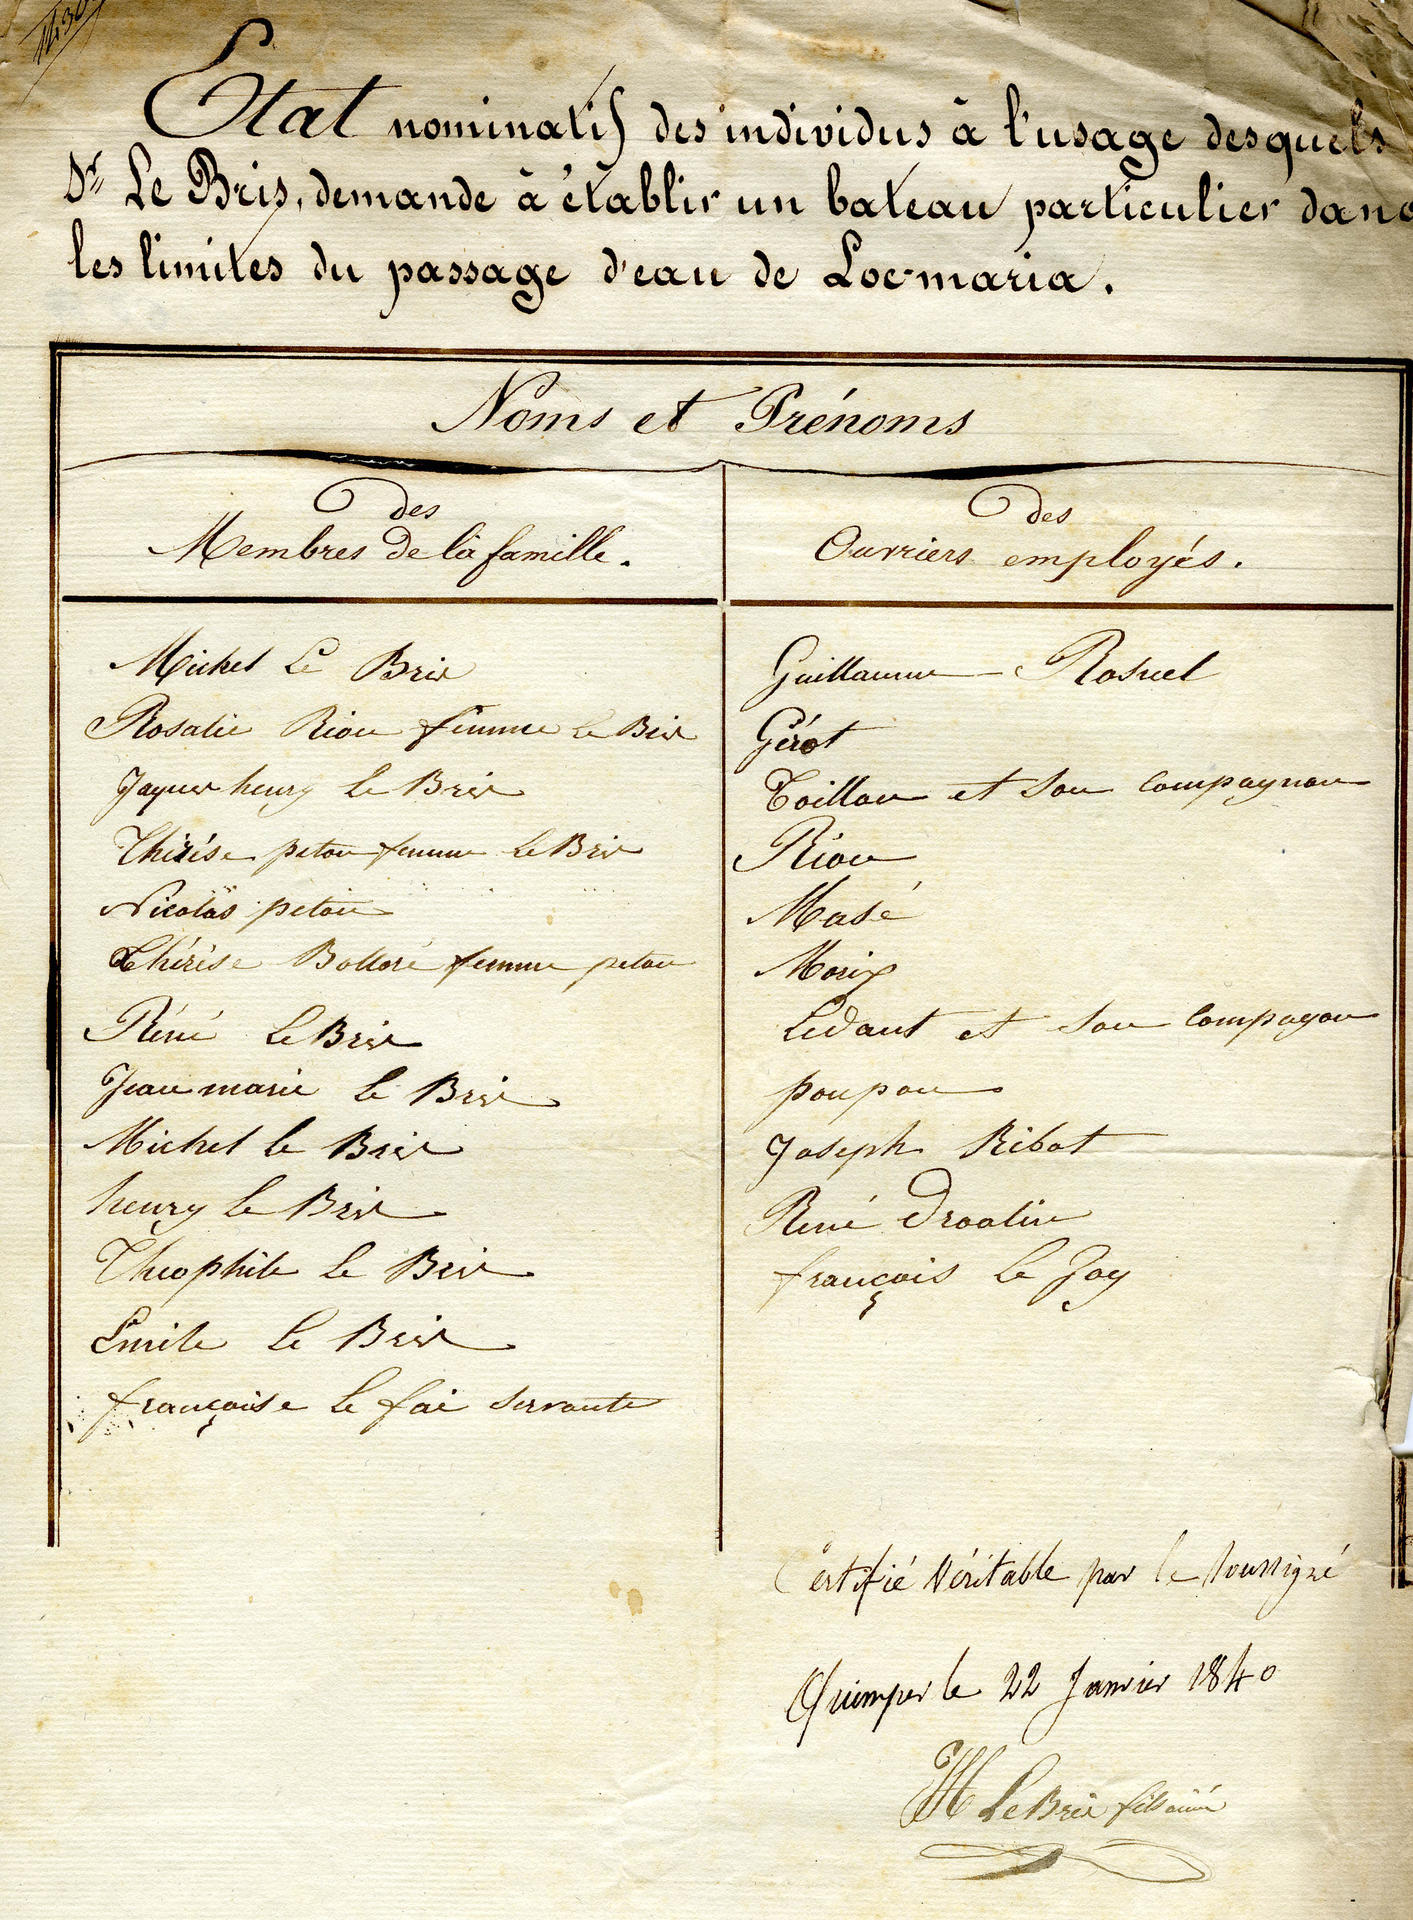 Etat nominatif des individus à l'usage desquels
Sr. Le Bris, demande à établir un bateau particulier dans
les limites du passage d'eau de Locmaria.
Noms et Prénoms
des
Membres de la famille.
des
Ouvriers employés.
Michel Le Bris
Rosalie Riou femme Le Bris
Jaques henry Le Bris
Thérèse petou femme Le Bris
Nicolas petou
Thérèse Bolloré femme petou
Réné Le Bris
Jean marie Le Bris
Michel le Bris
henry le Bris
Theophile Le Bris
Emile Le Bris
françoise Le fai servante
Guillaume Rosuel
Gérot
Toillou et son Compagnon
Riou
Masé
Morix
Ledant et son Compagon
poupou
Joseph Ribot
René
françois Le Joy
Certifié Véritable par le soussigné
Quimper le 22 Janvier 1840
Le Bris fils aîné